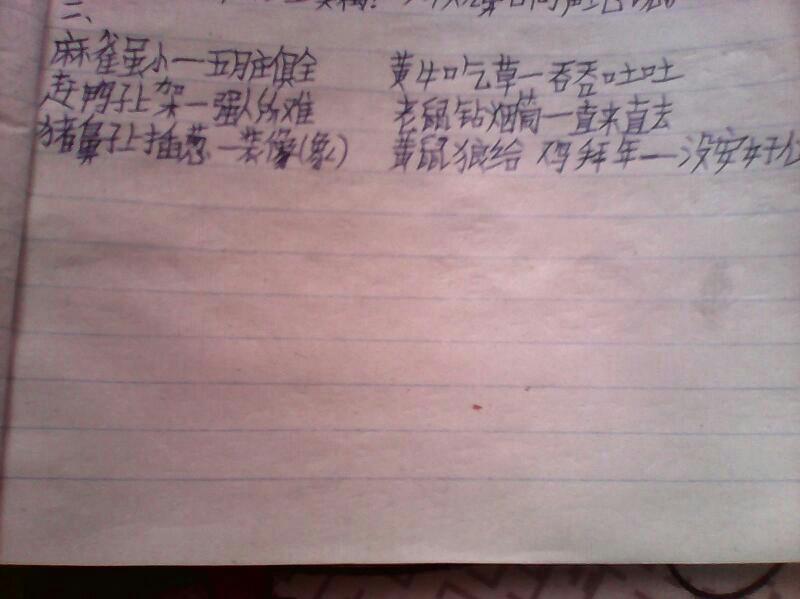 二、
麻雀虽小一五月庄俱全 黄牛吃草一吞吞吐吐
赶鸭子上架一强人所难 老鼠钻烟筒一直来直去
猪鼻子上插葱一装像(象) 黄鼠狼给鸡拜年一没安好